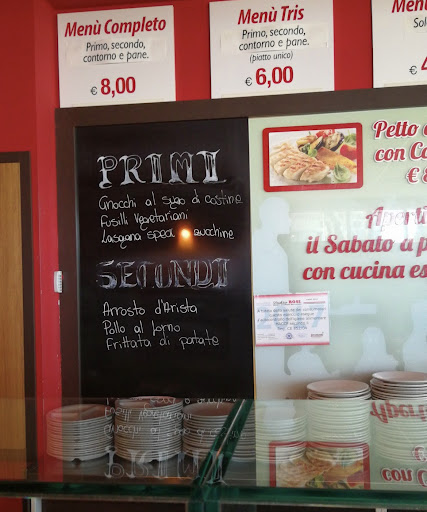 Menù Completo
Primo, secondo,
contorno e pane.
€ 8,00
Menù Tris
Primo, secondo,
contorno e pane.
(piatto unico)
€ 6,00
Menù
€ 4
PRIMI
Gnocchi al sugo di costine
Fusilli Vegetariani
Lasagna speck zucchine
SECONDI
Arrosto d'Arista
Pollo al forno
Frittata di patate
Petto
con
€
Aperi
il Sabato a
con cucina